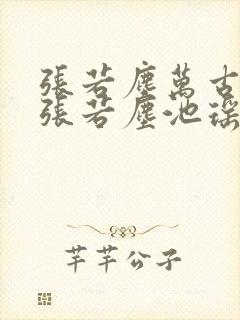 張若塵萬古
張若塵池瑤
芊芊公子